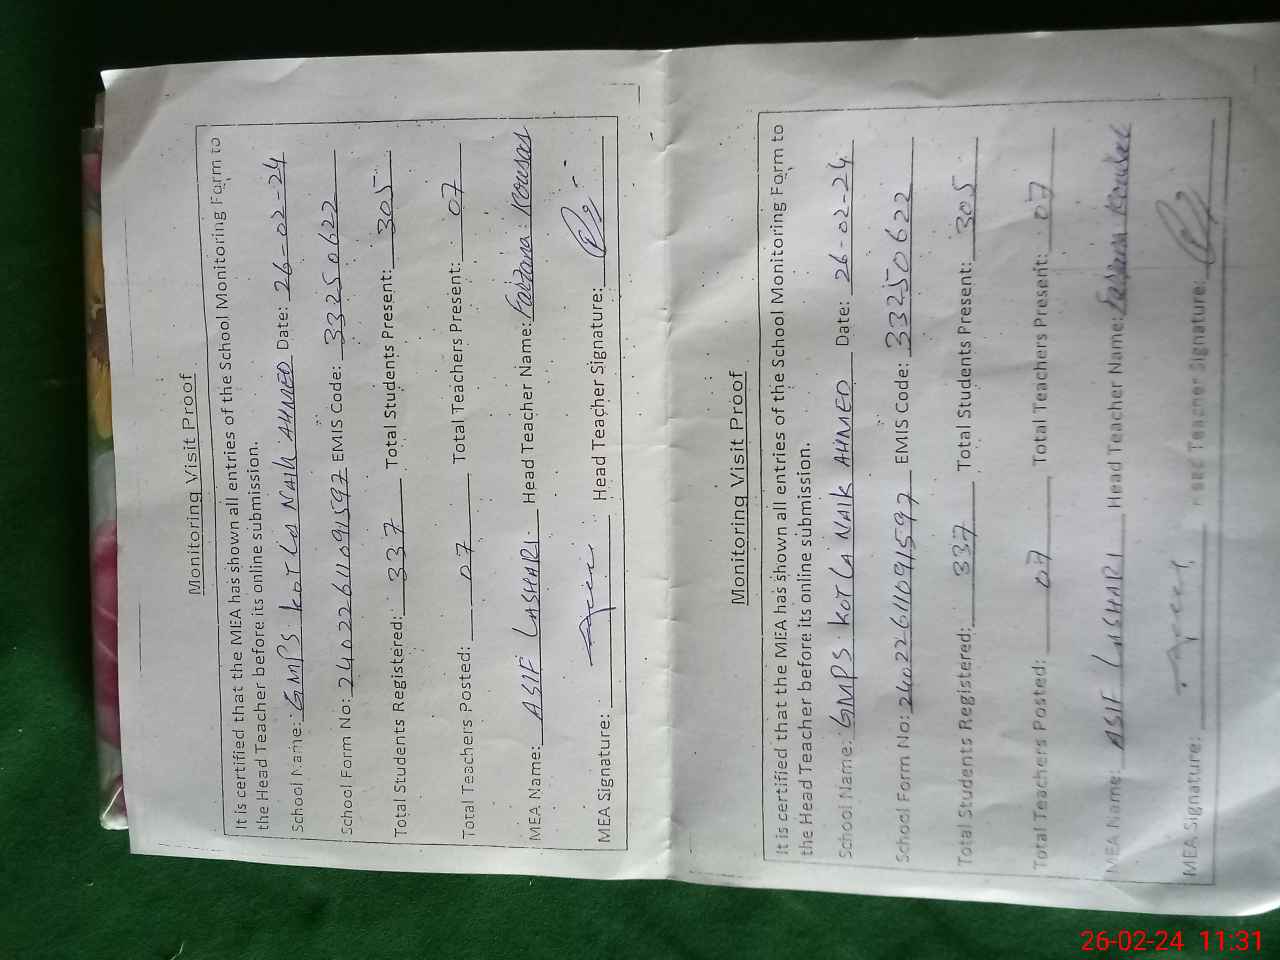 Monitoring Visit Proof
It is certified that the MEA has shown all entries of the School Monitoring Form to
the Head Teacher before its online submission.
School Name: GMPS KOTLA NAIK AHMED Date: 26-02-24
School Form No: 24022611091597 EMIS Code: 33250622
Total Students Registered: 337 Total Students Present: 305
Total Teachers Posted: 07 Total Teachers Present: 07
MEA Name: ASIF LASHARI Head Teacher Name: Farzana Kousar
MEA Signature: Head Teacher Signature:
Monitoring Visit Proof
It is certified that the MEA has shown all entries of the School Monitoring Form to
the Head Teacher before its online submission.
School Name: GMPS KOTLA NAIK AHMED Date: 26-02-24
School Form No: 24022611091597 EMIS Code: 33250622
Total Students Registered: 337 Total Students Present: 305
Total Teachers Posted: 07 Total Teachers Present: 07
MEA Name: ASIF LASHARI Head Teacher Name: Farzana Kousar
MEA Signature: Head Teacher Signature:
26-02-24 11:31